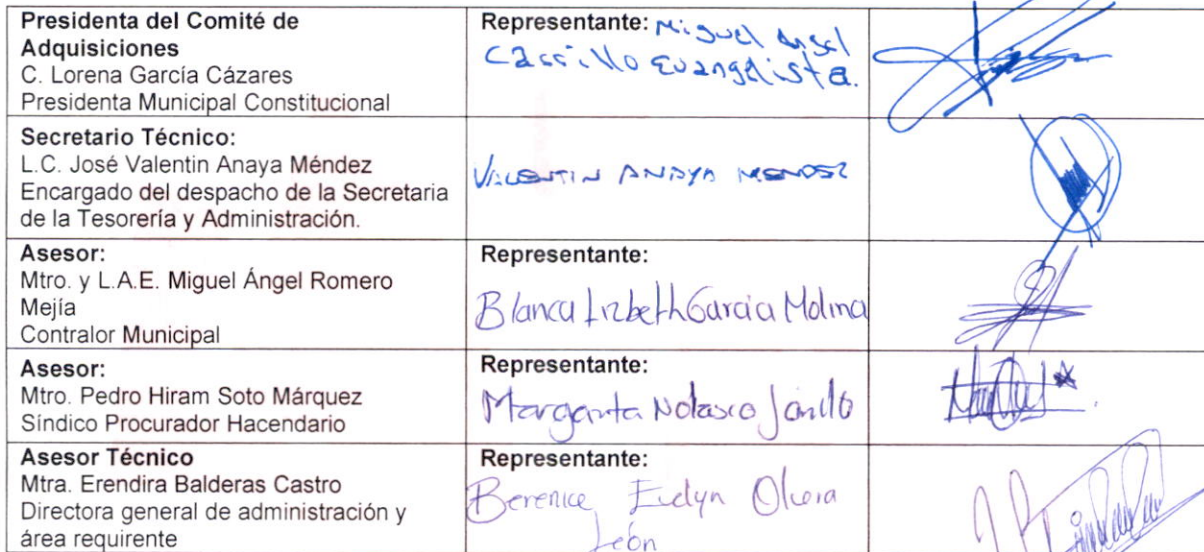 Presidenta del Comité de
Adquisiciones
C. Lorena García Cázares
Presidenta Municipal Constitucional
Representante: Miguel Angel
Carrillo Evangelista.
Secretario Técnico:
L.C. José Valentin Anaya Méndez
Encargado del despacho de la Secretaria
de la Tesorería y Administración.
VALENTIN ANAYA MENDEZ
Asesor:
Mtro. y L.A.E. Miguel Ángel Romero
Mejía
Contralor Municipal
Representante:
Blanca Lizbeth Garcia Molina
Asesor:
Mtro. Pedro Hiram Soto Márquez
Síndico Procurador Hacendario
Representante:
Margarita Nolasco
Asesor Técnico
Mtra. Erendira Balderas Castro
Directora general de administración y
área requirente
Representante:
Berenice Evelyn Olvera
León